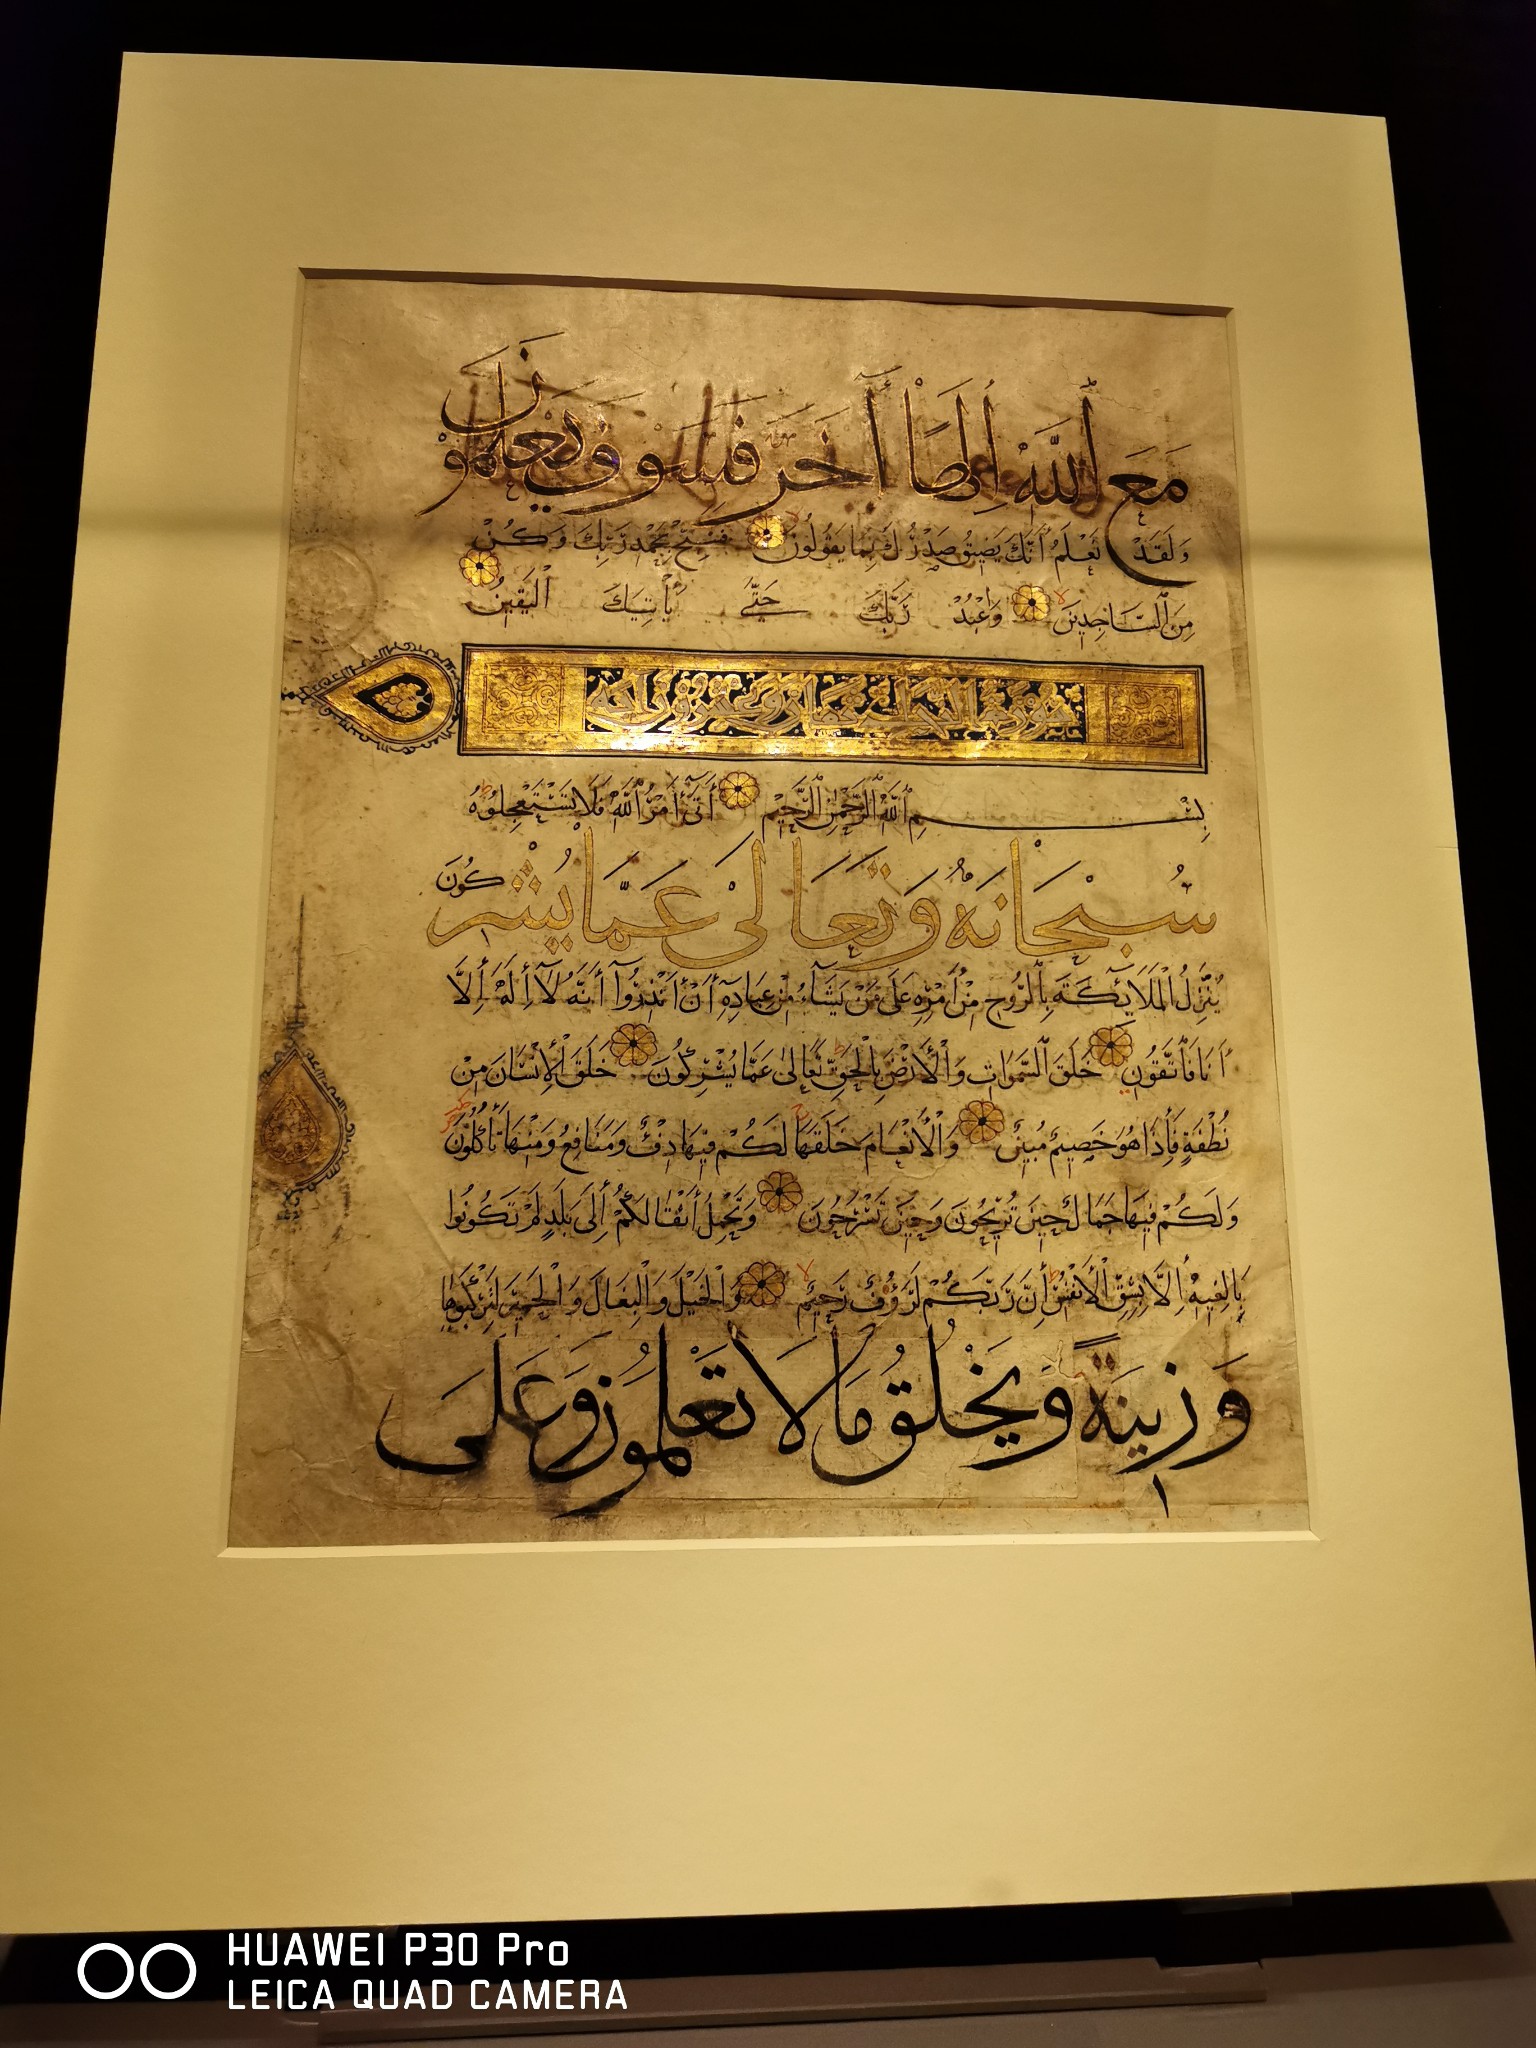 مَعَ ٱللَّهِ إِلَٰهًا آخَرَ فَسَوْفَ يَعْلَمُونَ
وَلَقَدْ نَعْلَمُ أَنَّكَ يَضِيقُ صَدْرُكَ بِمَا يَقُولُونَ فَسَبِّحْ بِحَمْدِ رَبِّكَ وَكُنْ
مِنَ ٱلسَّاجِدِينَ وَٱعْبُدْ رَبَّكَ حَتَّىٰ يَأْتِيَكَ ٱلْيَقِينُ
سورة النحل مائة وعشرون آية
بِسْمِ ٱللَّهِ ٱلرَّحْمَٰنِ ٱلرَّحِيمِ أَتَىٰ أَمْرُ ٱللَّهِ فَلَا تَسْتَعْجِلُوهُ
سُبْحَانَهُ وَتَعَالَىٰ عَمَّا يُشْرِكُونَ
يُنَزِّلُ ٱلْمَلَآئِكَةَ بِٱلرُّوحِ مِنْ أَمْرِهِ عَلَىٰ مَنْ يَشَآءُ مِنْ عِبَادِهِ أَنْ أَنْذِرُوٓا أَنَّهُ لَآ إِلَٰهَ إِلَّا
أَنَا فَٱتَّقُونِ خَلَقَ ٱلسَّمَوَاتِ وَٱلْأَرْضَ بِٱلْحَقِّ تَعَالَىٰ عَمَّا يُشْرِكُونَ خَلَقَ ٱلْإِنْسَانَ مِنْ
نُطْفَةٍ فَإِذَا هُوَ خَصِيمٌ مُبِينٌ وَٱلْأَنْعَامَ خَلَقَهَا لَكُمْ فِيهَا دِفْءٌ وَمَنَافِعُ وَمِنْهَا تَأْكُلُونَ
وَلَكُمْ فِيهَا جَمَالٌ حِينَ تُرِيحُونَ وَحِينَ تَسْرَحُونَ وَتَحْمِلُ أَثْقَالَكُمْ إِلَىٰ بَلَدٍ لَمْ تَكُونُوا
بَالِغِيهِ إِلَّا بِشِقِّ ٱلْأَنْفُسِ إِنَّ رَبَّكُمْ لَرَؤُفٌ رَحِيمٌ وَٱلْخَيْلَ وَٱلْبِغَالَ وَٱلْحَمِيرَ لِتَرْكَبُوهَا
وَزِينَةً وَيَخْلُقُ مَا لَا تَعْلَمُونَ وَعَلَى
HUAWEI P30 Pro
LEICA QUAD CAMERA